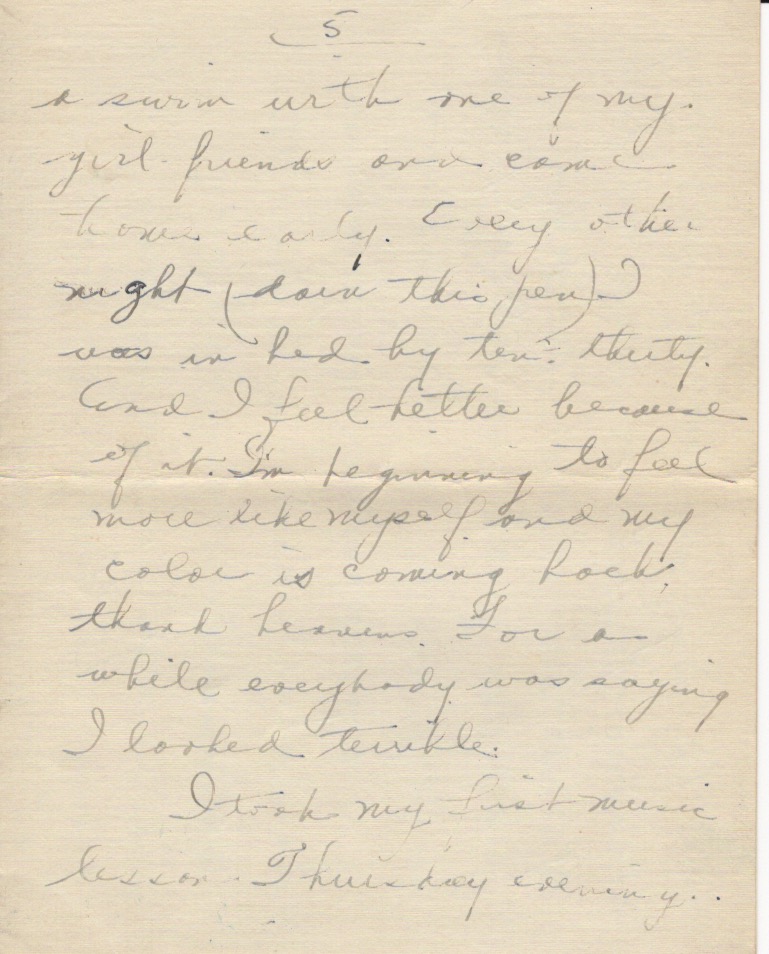 5
a swim with one of my
girl friends and came
home early. Every other
night (darn this pen) I
was in bed by ten-thirty.
And I feel better because
of it. I'm beginning to feel
more like myself and my
color is coming back,
thank heavens. For a
while everybody was saying
I looked terrible.
I took my first music
lesson Thursday evening.